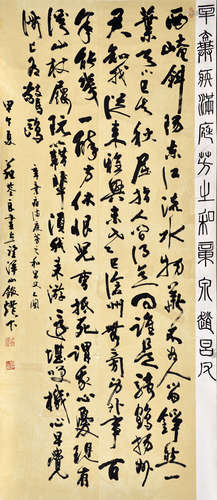 辛棄疾滿庭芳之和章泉趙昌父
西崦斜陽東江流水物華不為人留錚然一
葉天下已知秋屈指人間得意問誰是騎鶴揚州
君知我從來雅興未老已滄州無窮身外事百
年能幾一醉都休恨兒曹抵死謂我心憂況有
溪山杖屨阮籍輩須我來游還堪笑機心早覺
海上有驚鷗
辛棄疾滿庭芳之和昌父
甲午夏